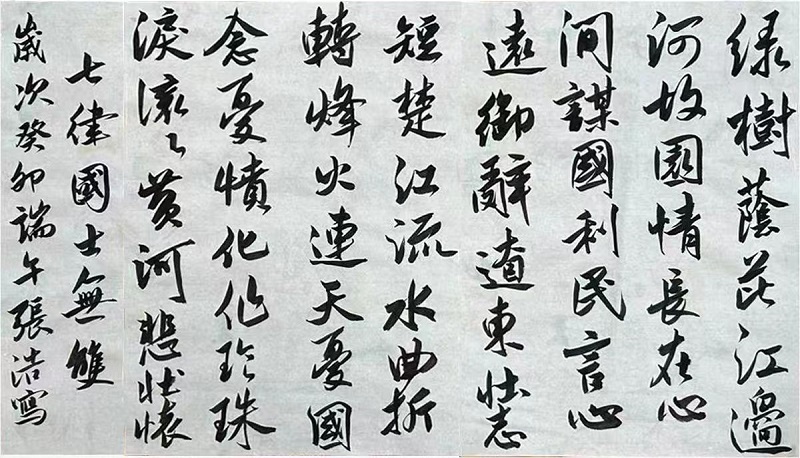 绿樹蔭江邊
河故園情長在心
间謀國利民言心
遠御辭遼東壮志
短楚江流水曲折
轉烽火連天憂國
念憂憤化作珍珠
淚滚々黄河悲壮懷
七律國士無雙
歲次癸卯端午張浩寫